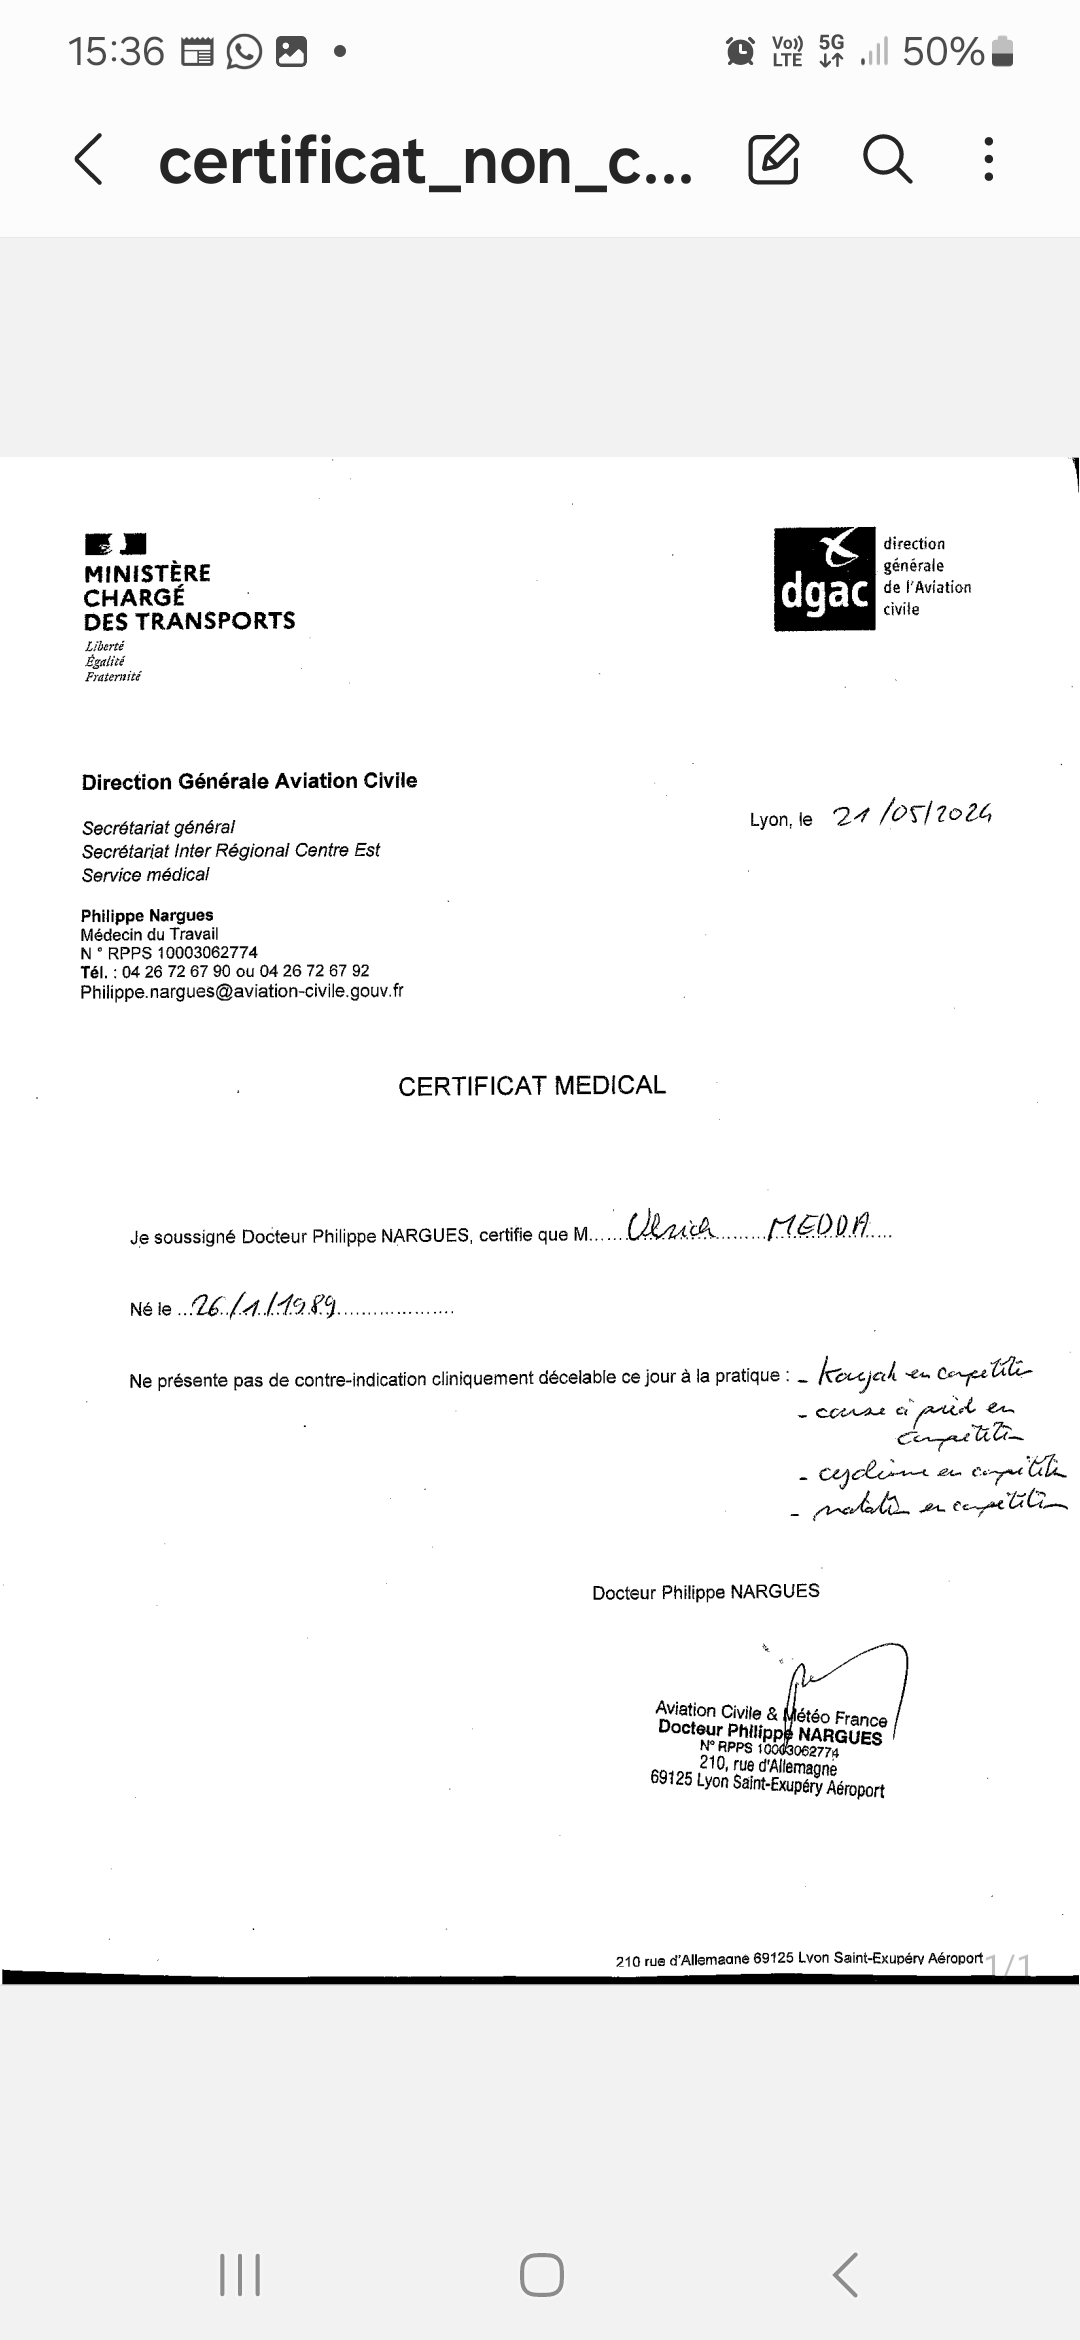 15:36 Vo)) LTE 5G 50%
certificat_non_c...
MINISTÈRE
CHARGÉ
DES TRANSPORTS
Liberté
Égalité
Fraternité
dgac
direction
générale
de l'Aviation
civile
Direction Générale Aviation Civile
Secrétariat général
Secrétariat Inter Régional Centre Est
Service médical
Lyon, le 21/05/2024
Philippe Nargues
Médecin du Travail
N° RPPS 10003062774
Tél. : 04 26 72 67 90 ou 04 26 72 67 92
Philippe.nargues@aviation-civile.gouv.fr
CERTIFICAT MEDICAL
Je soussigné Docteur Philippe NARGUES, certifie que M..... Ulrich ........ MEDDA ....
Né le ...26/1/1989....................
Ne présente pas de contre-indication cliniquement décelable ce jour à la pratique : - en compétition
- course à pied en
compétition
- cyclisme en compétition
- natation en compétition
Docteur Philippe NARGUES
Aviation Civile & Météo France
Docteur Philippe NARGUES
N° RPPS 10003062774
210, rue d'Allemagne
69125 Lyon Saint-Exupéry Aéroport
210 rue d'Allemagne 69125 Lyon Saint-Exupéry Aéroport
1/1